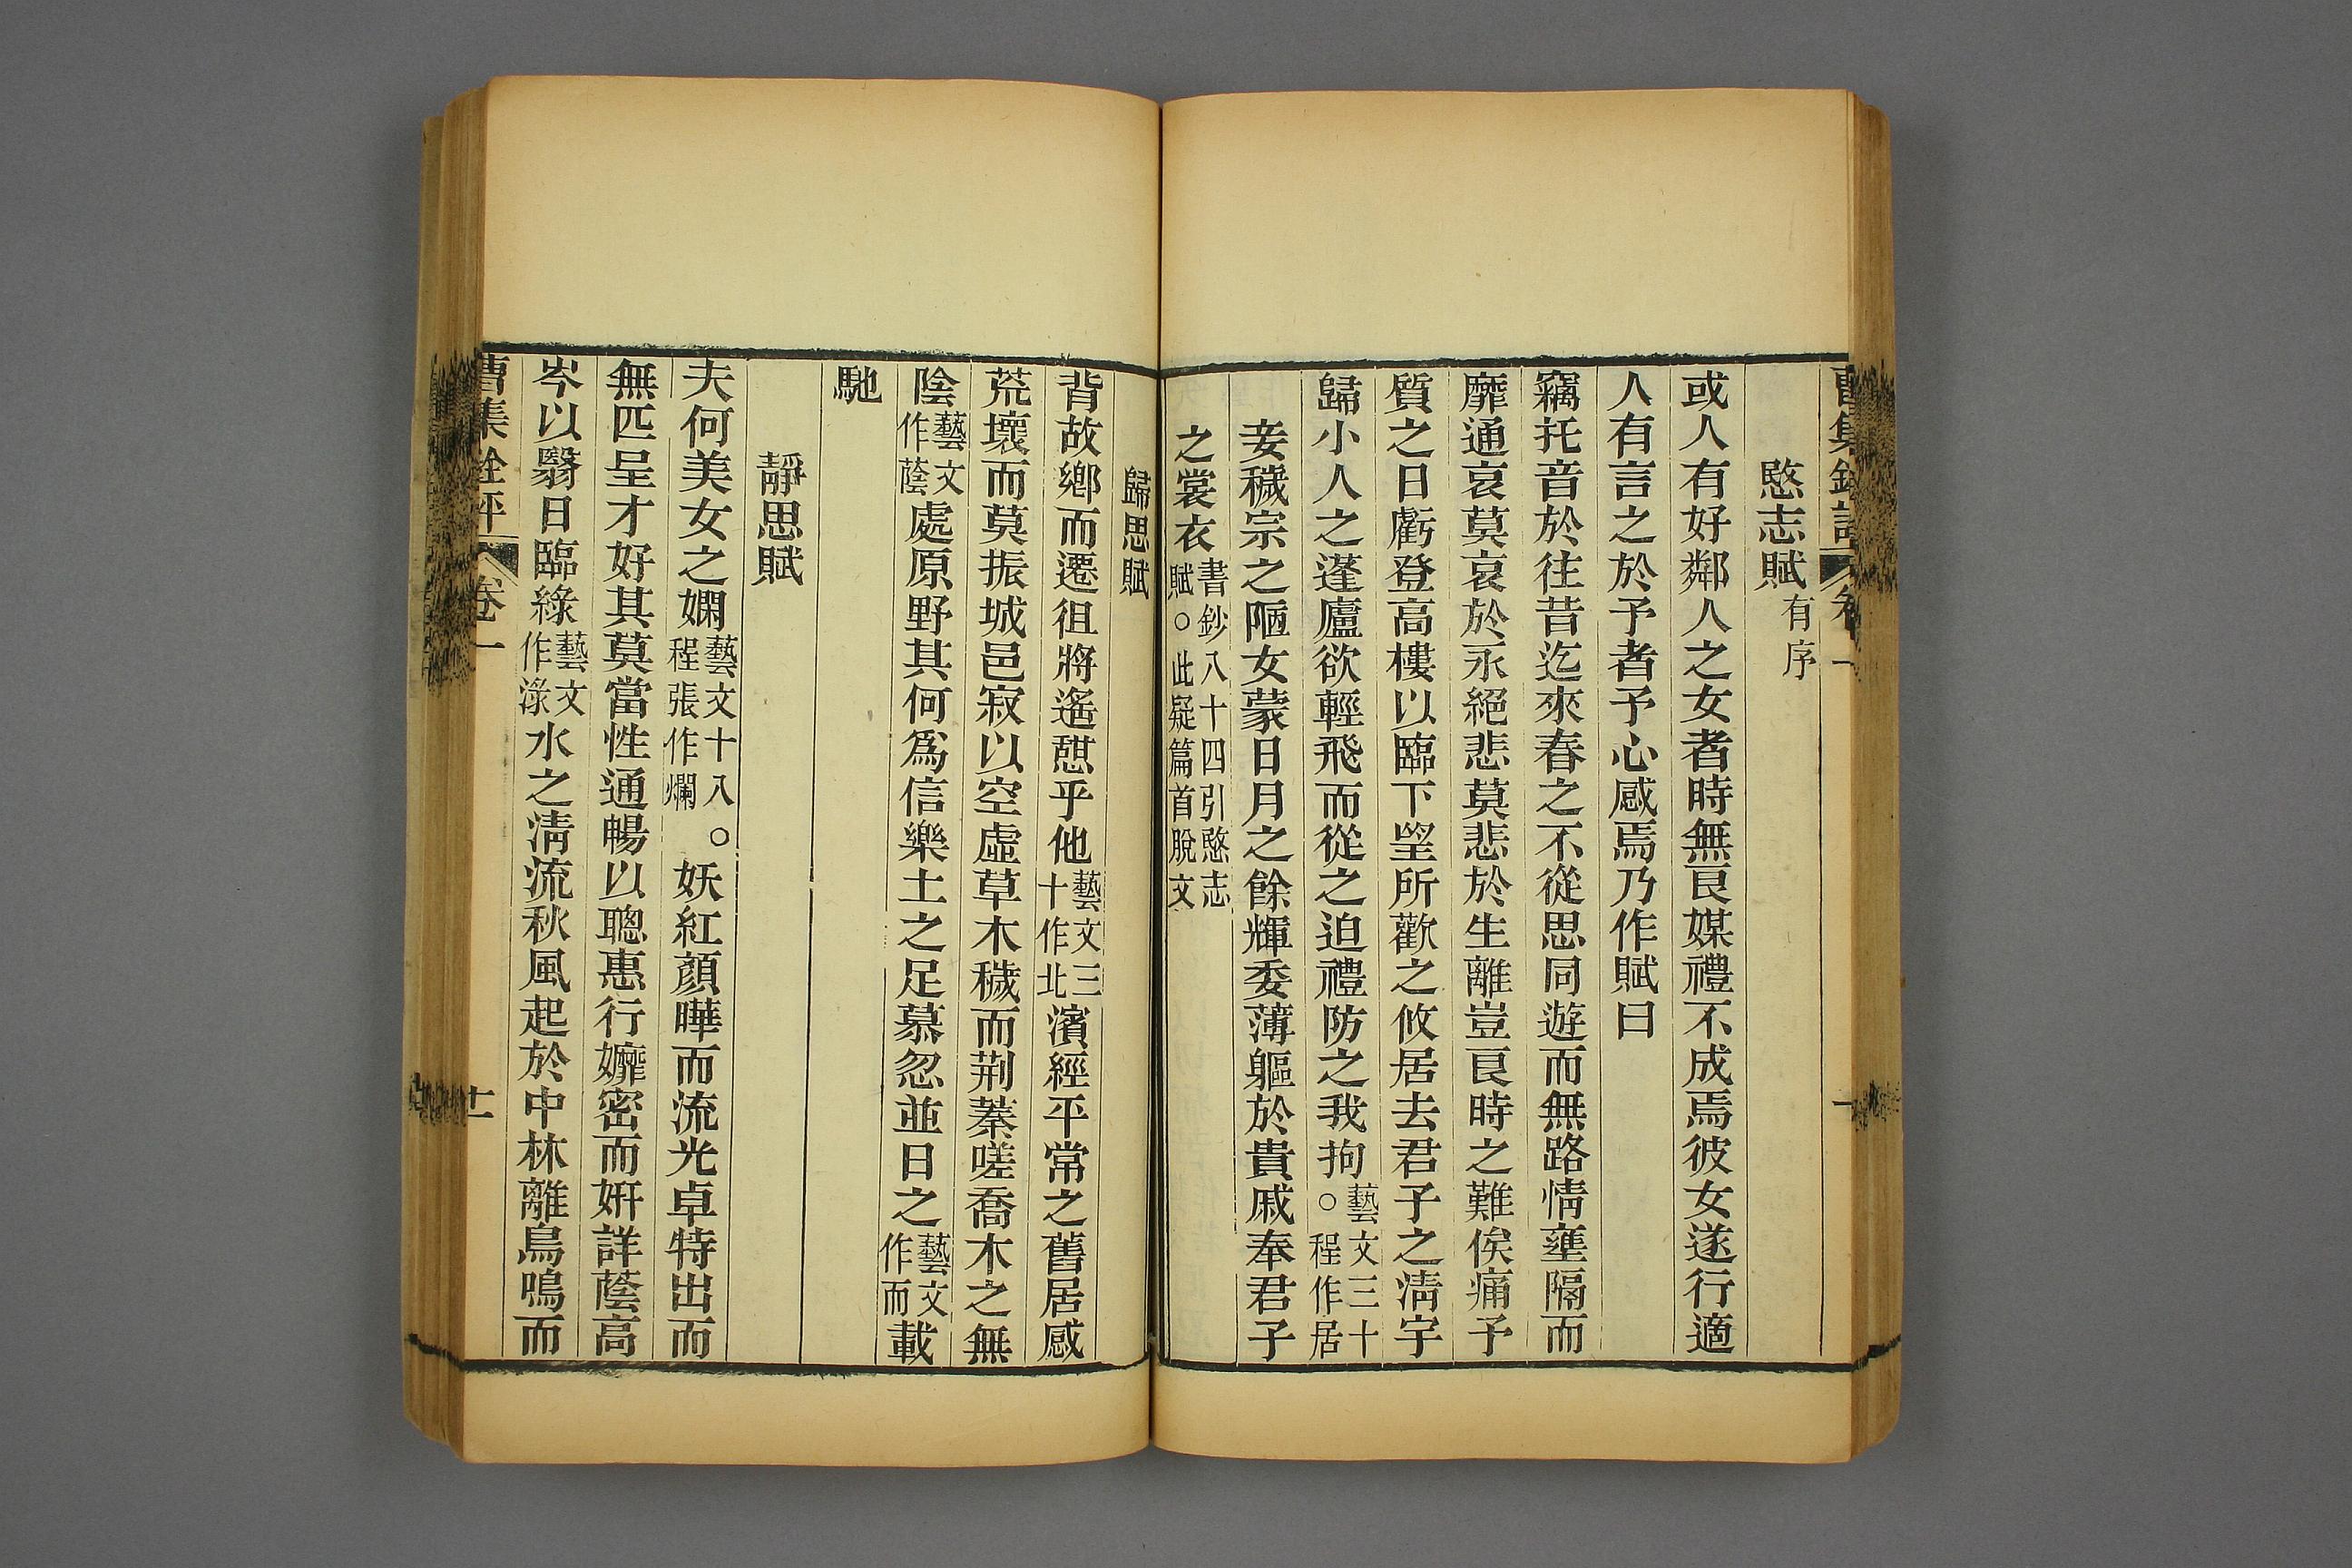 愍志賦有序
或人有好鄰人之女者時無良媒禮不成焉彼女遂行適
人有言之於予者予心感焉乃作賦曰
竊托音於往昔迄來春之不從思同遊而無路情壅隔而
靡通哀莫哀於永絕悲莫悲於生離豈良時之難俟痛予
質之日虧登高樓以臨下望所歡之攸居去君子之清宇
歸小人之蓬廬欲輕飛而從之迫禮防之我拘。藝文三十程作居
妾穢宗之陋女蒙日月之餘輝委薄軀於貴戚奉君子
之裳衣書鈔八十四引愍志賦。此疑篇首脫文
歸思賦
背故鄉而遷徂將遙憇乎他藝文三十作北濱經平常之舊居感
荒壞而莫振城邑寂以空虛草木穢而荆蓁嗟喬木之無
陰藝文作蔭處原野其何爲信樂土之足慕忽並日之藝文作而載
馳
靜思賦
夫何美女之嫻藝文十八程張作爛。妖紅顏曄而流光卓特出而
無匹呈才好其莫當性通暢以聰惠行孊密而妍詳蔭高
岑以翳日臨綠藝文作淥水之清流秋風起於中林離鳥鳴而
曹集銓評 卷一 十一